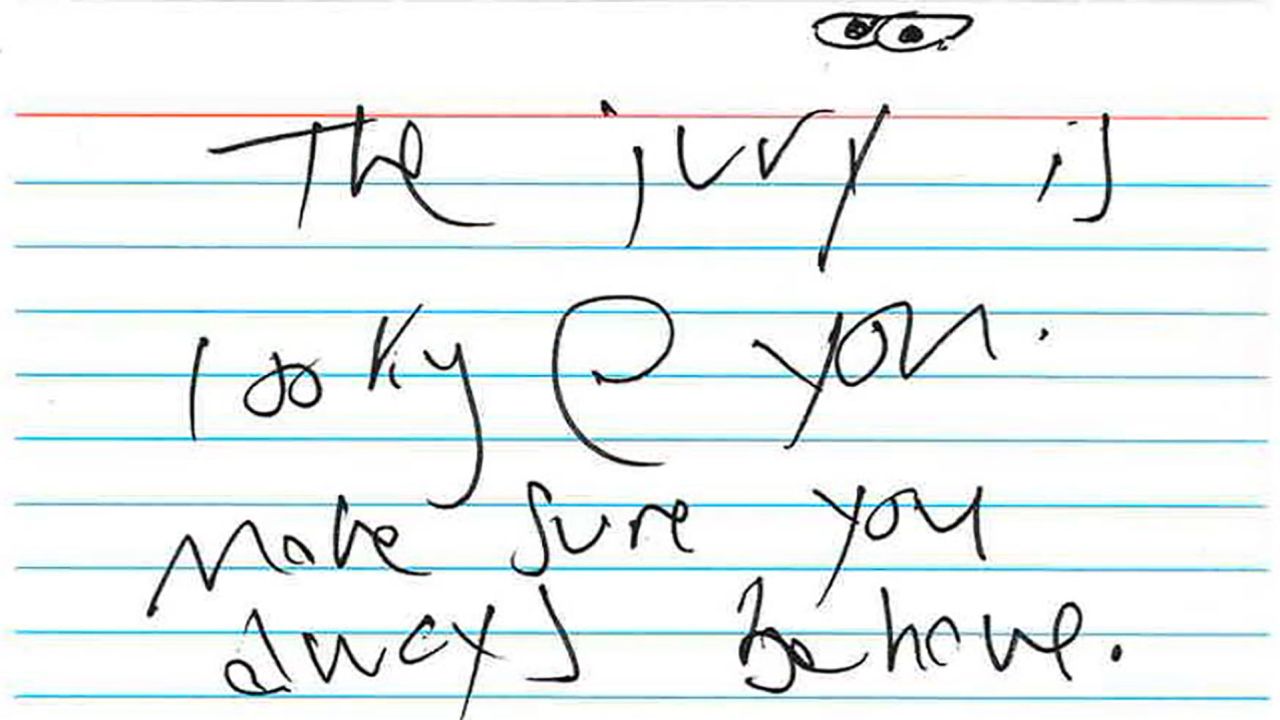 The jury is
looky @ you.
Make sure you
always behave.